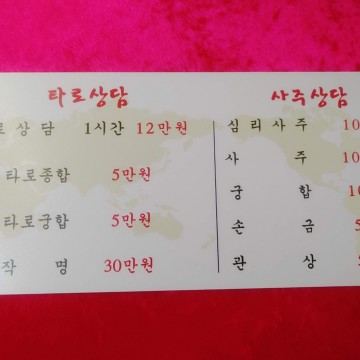 타로상담
로 상 담 1시간 12만원
타로종합 5만원
타로궁합 5만원
작 명 30만원
사주상담
심 리 사 주 10
사 주 10
궁 합 10
손 금
관 상